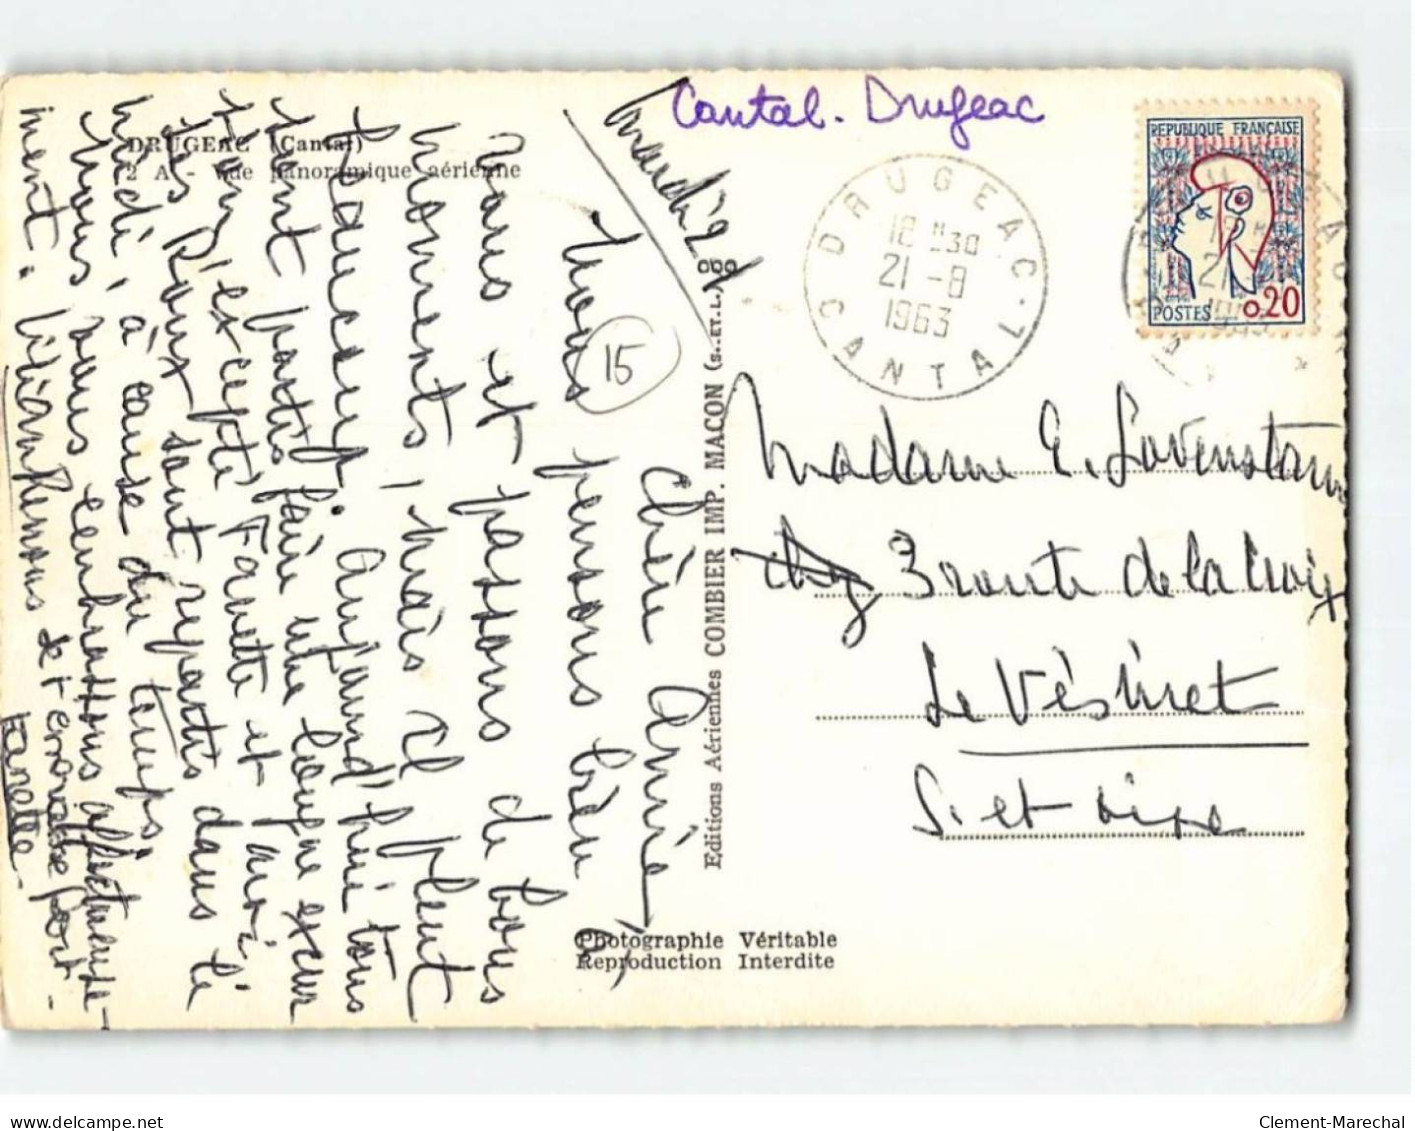 Cantal. Drugeac
DRUGEAC (Cantal)
2 A - Vue panoramique aérienne
Mardi 2
Chère Annie,
Nous pensons bien à
vous et passons de bons
moments, mais il pleut
beaucoup. Aujourd'hui tous
sont partis faire une longue excur
sion, excepté Fanette et moi.
Les Roux sont repartis dans le
midi, à cause du temps.
Nous vous embrassons affectueuse-
ment.
et embrasse fort
Fanette.
15
Editions Aériennes COMBIER IMP. MACON (S.-ET-L.)
Photographie Véritable
Reproduction Interdite
DRUGEAC. CANTAL
18 H30
21 -8
1963
REPUBLIQUE FRANÇAISE
POSTES 0,20
Madame E. Lovenstam
chez 3 route de la Croix
Le Vésinet
S. et Oise
delcampe.net
Clement-Marechal